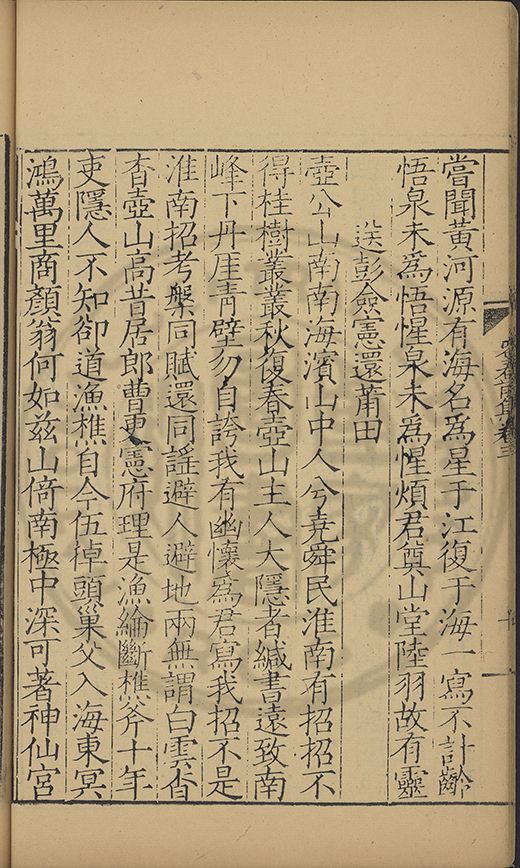 嘗聞黃河源有海名爲星于江復于海一寫不計齡
悟泉未爲悟惺泉未爲惺煩君箕山堂陸羽故有靈
送彭僉憲還莆田
壺公山南南海濱山中人兮堯舜民淮南有招招不
得桂樹叢叢秋復春壺山主人大隱者緘書遠致南
峰下丹厓青壁勿自誇我有幽懷爲君寫我招不是
淮南招考槃同賦還同謡避人避地兩無謂白雲杳
杳壺山高昔居郎曹吏憲府理是漁綸斷樵斧十年
吏隱人不知卻道漁樵自今伍棹頭巢父入海東冥
鴻萬里商顏翁何如兹山倚南極中深可著神仙宮